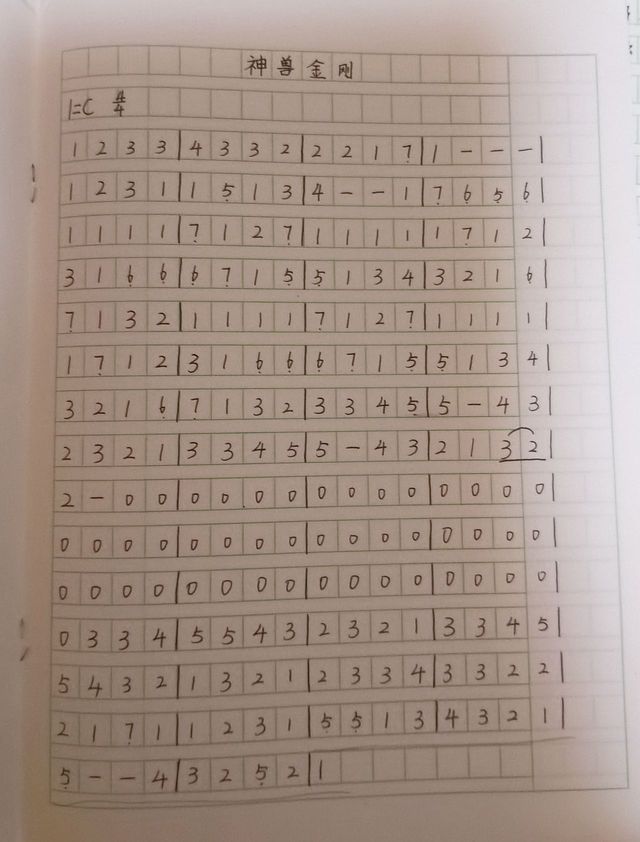 神兽金刚
1=C 4/4
1 2 3 3 | 4 3 3 2 | 2 2 1 7̣ | 1 - - - |
1 2 3 1 | 1 5̣ 1 3 | 4 - - 1 | 7̣ 6̣ 5̣ 6̣ |
1 1 1 1 | 7̣ 1 2 7̣ | 1 1 1 1 | 1 7̣ 1 2 |
3 1 6̣ 6̣ | 6̣ 7̣ 1 5̣ | 5̣ 1 3 4 | 3 2 1 6̣ |
7̣ 1 3 2 | 1 1 1 1 | 7̣ 1 2 7̣ | 1 1 1 1 |
1 7̣ 1 2 | 3 1 6̣ 6̣ | 6̣ 7̣ 1 5̣ | 5̣ 1 3 4 |
3 2 1 6̣ | 7̣ 1 3 2 | 3 3 4 5̣ | 5 - 4 3 |
2 3 2 1 | 3 3 4 5 | 5 - 4 3 | 2 1 3 2 |
2 - 0 0 | 0 0 0 0 | 0 0 0 0 | 0 0 0 0 |
0 0 0 0 | 0 0 0 0 | 0 0 0 0 | 0 0 0 0 |
0 0 0 0 | 0 0 0 0 | 0 0 0 0 | 0 0 0 0 |
0 3 3 4 | 5 5 4 3 | 2 3 2 1 | 3 3 4 5 |
5 4 3 2 | 1 3 2 1 | 2 3 3 4 | 3 3 2 2 |
2 1 7̣ 1 | 1 2 3 1 | 5̣ 5̣ 1 3 | 4 3 2 1 |
5̣ - - 4 | 3 2 5̣ 2 | 1